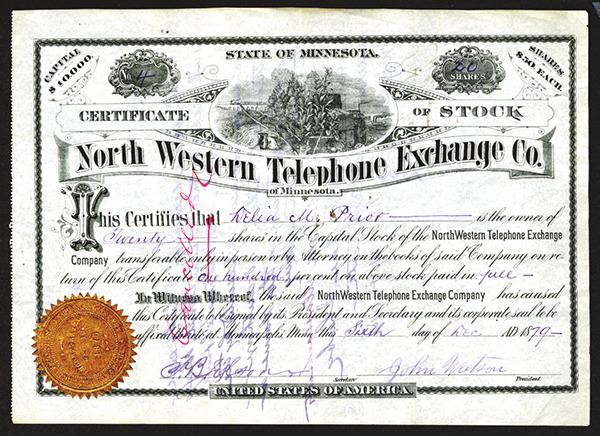 STATE OF MINNESOTA.
CAPITAL $10,000.
No. 4
20 SHARES
SHARES $50, EACH.
CERTIFICATE OF STOCK
North Western Telephone Exchange Co.
of Minnesota.
This Certifies that Delia M. Prior is the owner of
Twenty shares in the Capital Stock of the North Western Telephone Exchange
Company transferable only in person or by Attorney on the books of said Company on re-
turn of this Certificate One hundred per cent on above stock paid in full
In Witness Whereof, the said North Western Telephone Exchange Company has caused
this Certificate to be signed by its President and Secretary and its corporate seal to be
affixed thereto at Minneapolis, Minn. this Sixth day of Dec AD 1879
John Watson
Secretary President
UNITED STATES OF AMERICA.
Cancelled